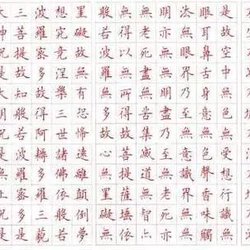 是故空中無色無受想行識無
眼耳鼻舌身意無色聲香味觸
法無眼界乃至無意識界無無
明亦無無明盡乃至無老死亦
無老死盡無苦集滅道無智亦
無得以無所得故菩提薩埵依
般若波羅蜜多故心無罣礙無
罣礙故無有恐怖遠離顛倒夢
想究竟涅槃三世諸佛依般若
波羅蜜多故得阿耨多羅三藐
三菩提故知般若波羅蜜多是
大神咒是大明咒是無上咒是